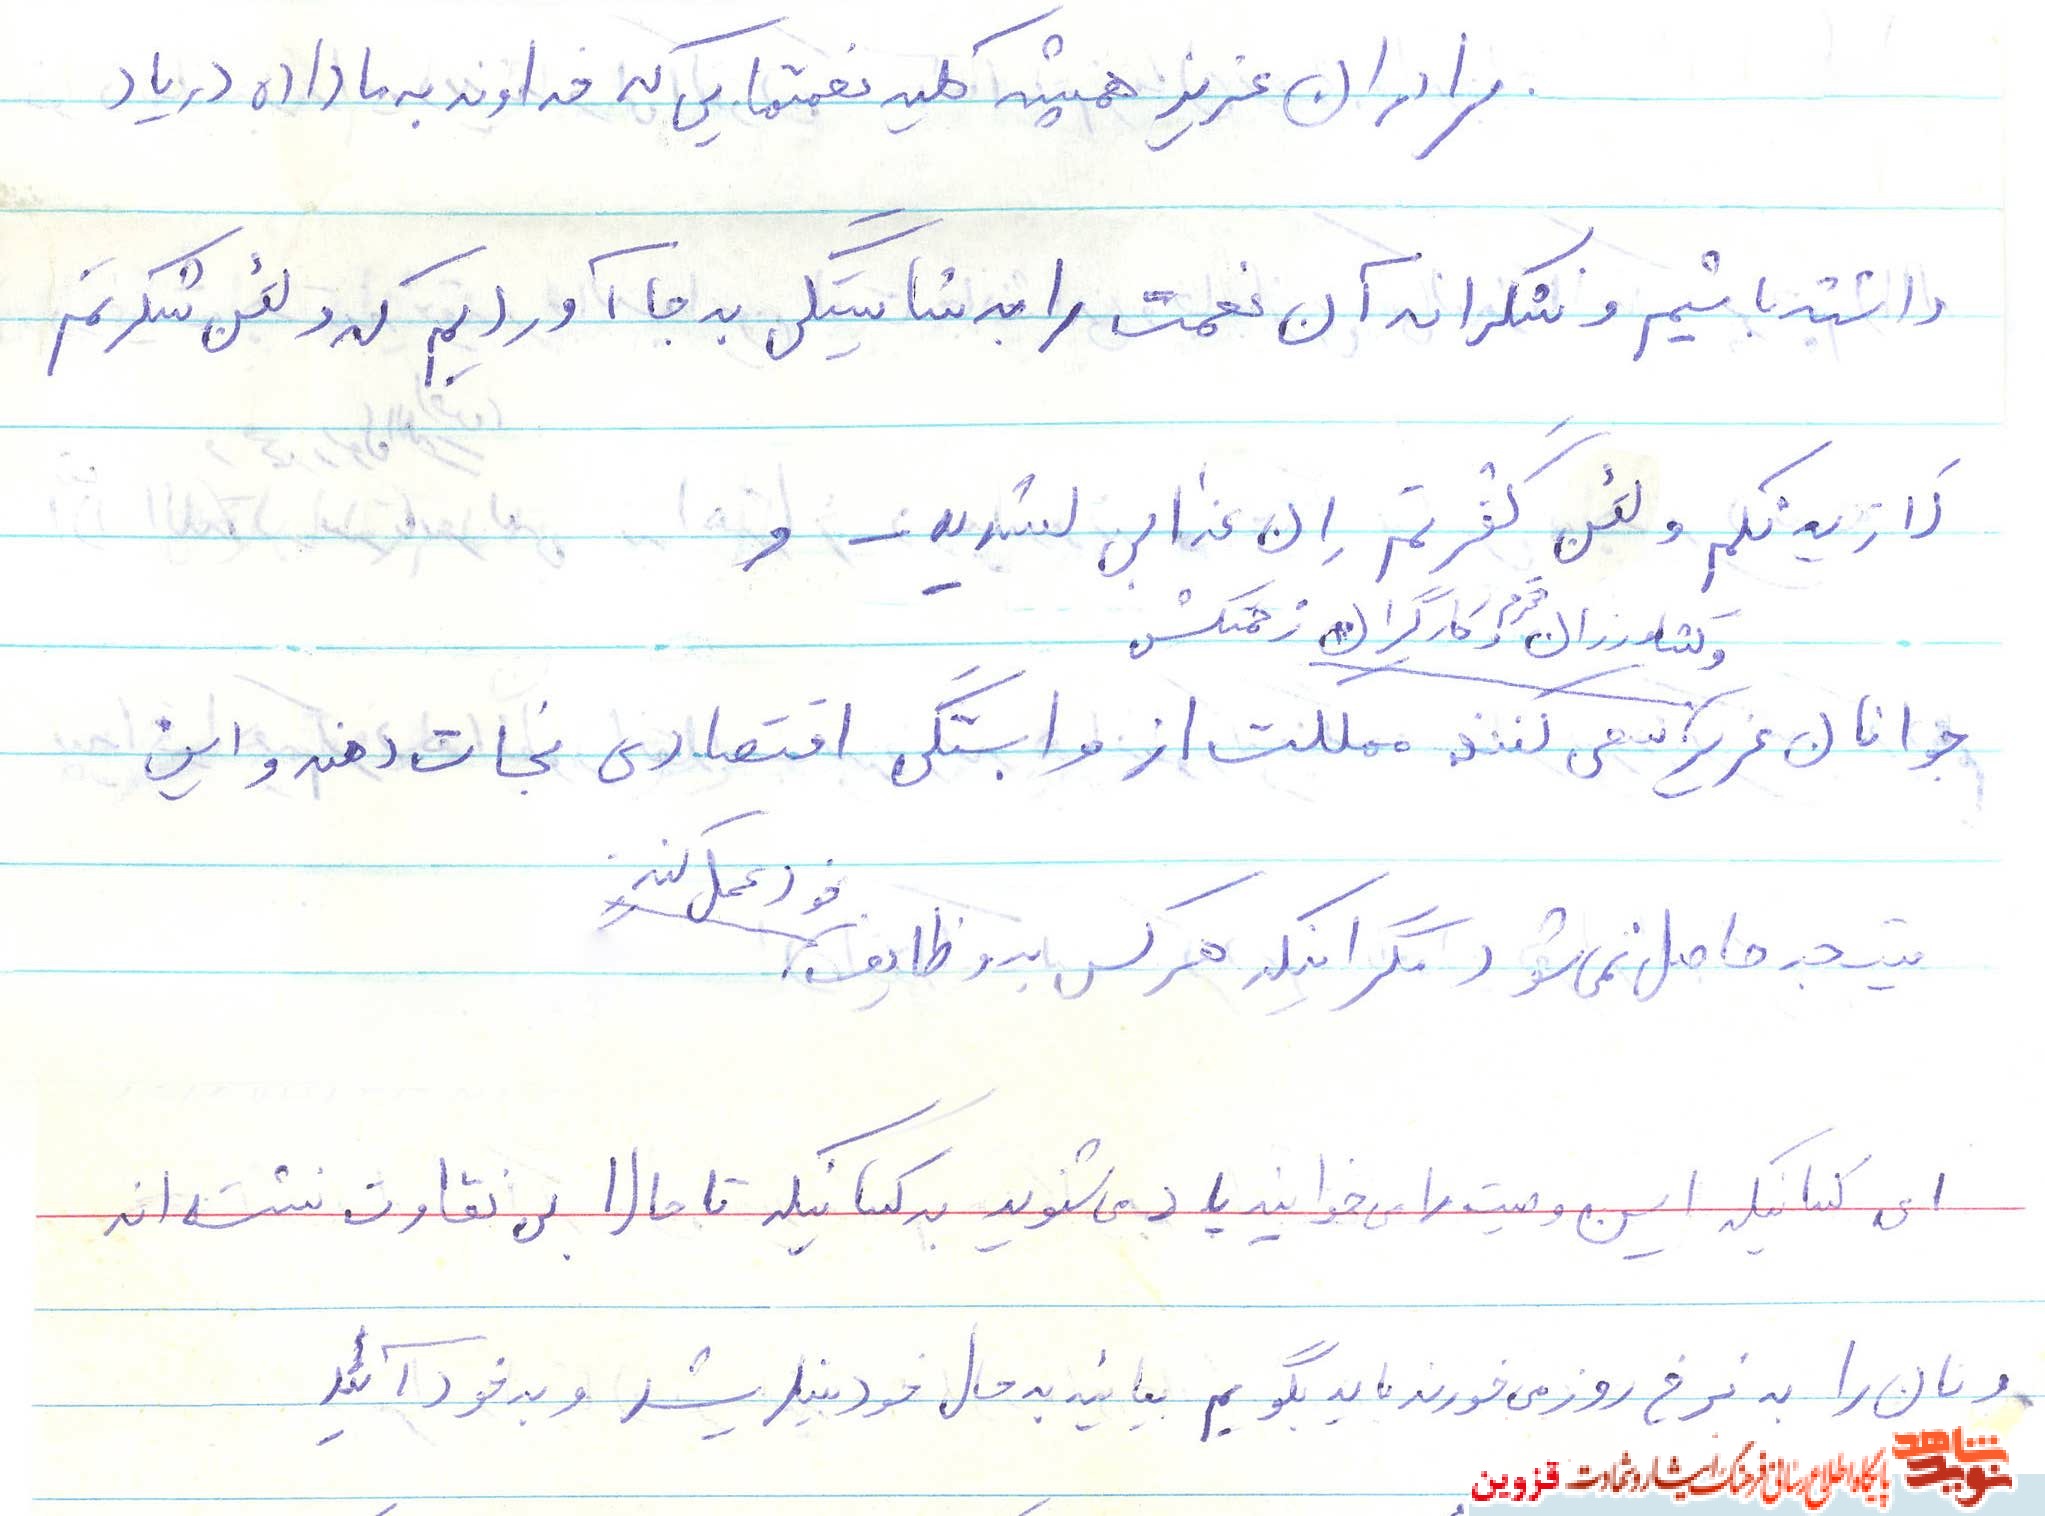 برادران عزیز همیشه کلیه نعمتهایی که خداوند به ما داده در یاد
داشته باشیم و شکرانه آن نعمت را به شایستگی به جا آوردیم که ولئن شکرتم
لازیدنکم ولئن کفرتم ان عذابی لشدید و
و کشاورزان محترم و کارگران زحمتکش
جوانان عزیز سعی کنند مملکت از وابستگی اقتصادی نجات دهند و این
خود عمل کنند
نتیجه حاصل نمی شود مگر اینکه هر کس به وظایف
ای کسانیکه این وصیت را می خوانید یا می شنوید به کسانیکه تا حالا بی تفاوت نشسته اند
و نان را به نرخ روز می خورند باید بگویم بیائید به حال خود بیندیشید و به خود آئید
شاهد نوید پایگاه اطلاع رسانی فرهنگ ایثار و شهادت قزوین